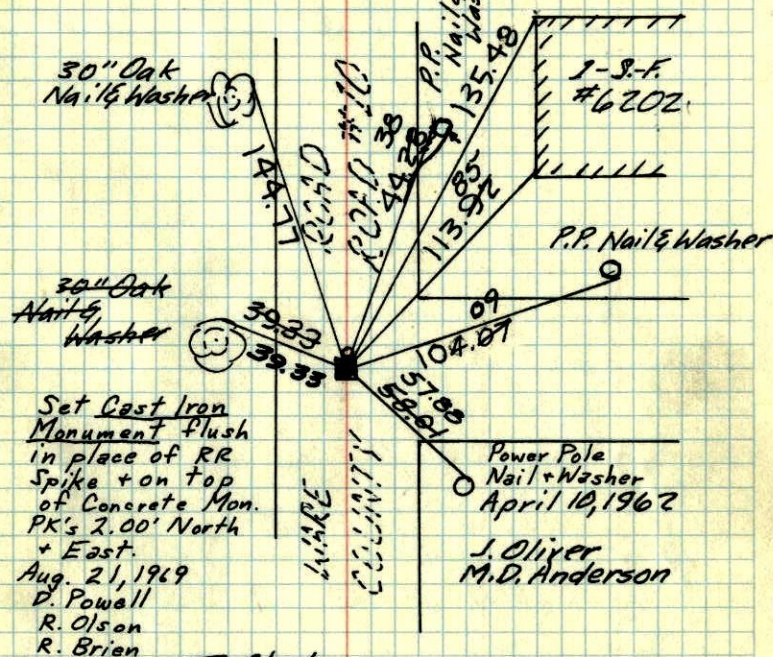 30" Oak
Nail & Washer
P.P.
Nail &
135.48
1-S-F.
#6202
144.77
ROAD
38
44.28
85
113.92
P.P. Nail & Washer
30" Oak
Nail &
Washer
39.33
39.33
09
104.07
57.88
58.01
Set Cast Iron
Monument flush
in place of RR
Spike + on top
of Concrete Mon.
PK's 2.00' North
+ East.
Aug. 21, 1969
D. Powell
R. Olson
R. Brien
COUNTY
Power Pole
Nail + Washer
April 10, 1962
J. Oliver
M.D. Anderson